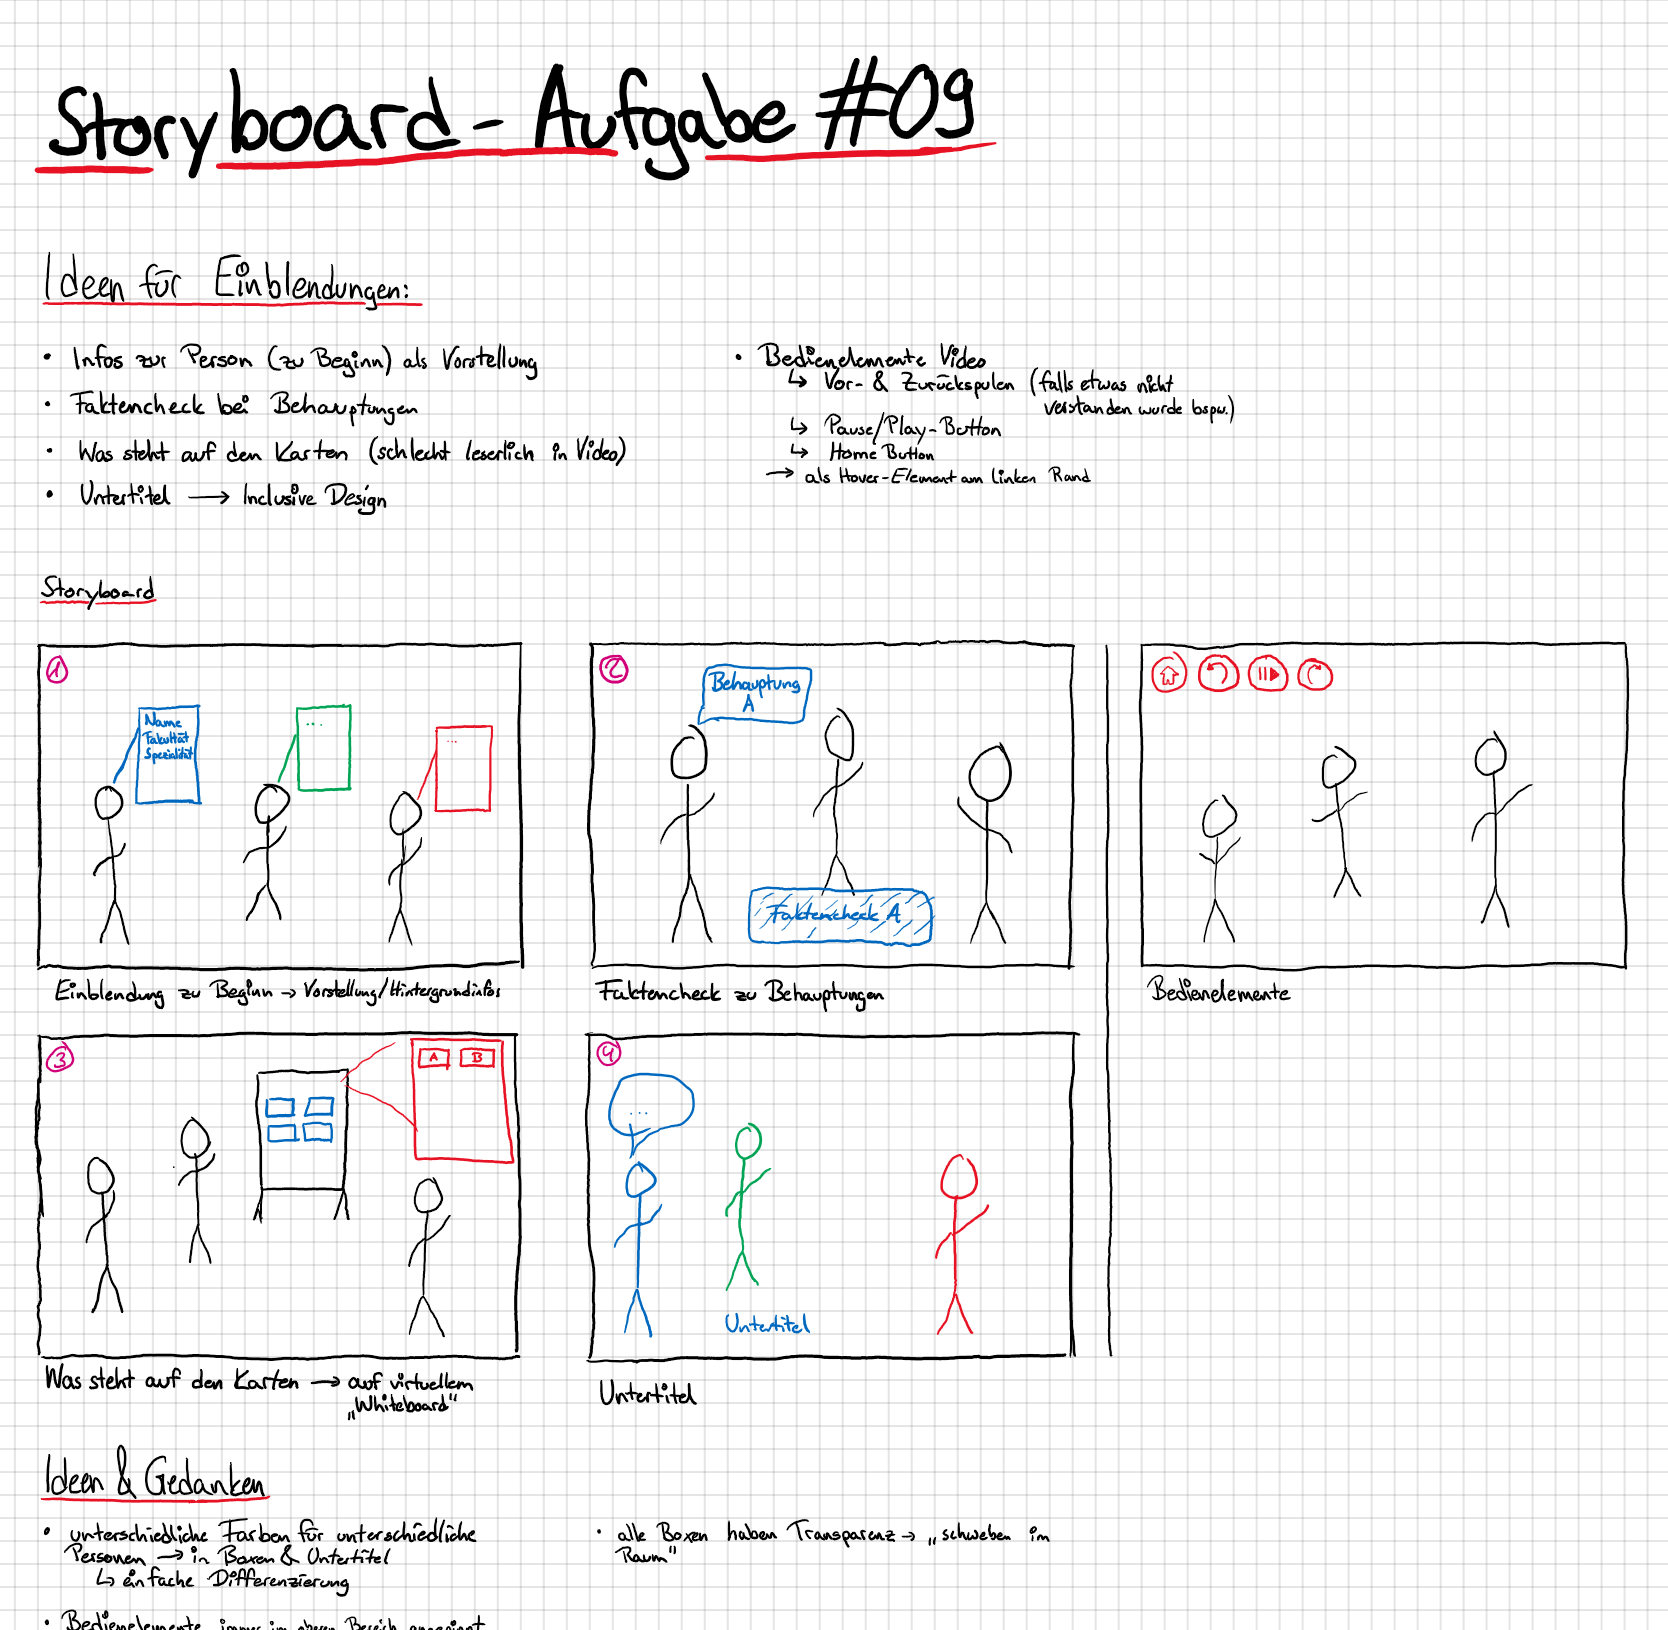 Storyboard - Aufgabe #09
Ideen für Einblendungen:
• Infos zur Person (zu Beginn) als Vorstellung
• Faktencheck bei Behauptungen
• Was steht auf den Karten (schlecht leserlich in Video)
• Untertitel → Inclusive Design
• Bedienelemente Video
↳ Vor- & Zurückspulen (falls etwas nicht
verstanden wurde bspw.)
↳ Pause/Play-Button
↳ Home Button
→ als Hover-Element am linken Rand
Storyboard
1
Name
Fakultät
Spezialität
...
...
Einblendung zu Beginn → Vorstellung/Hintergrundinfos
2
Behauptung
A
Faktencheck A
Faktencheck zu Behauptungen
Bedienelemente
3
A B
Was steht auf den Karten → auf virtuellem
„Whiteboard"
4
...
Untertitel
Untertitel
Ideen & Gedanken
• unterschiedliche Farben für unterschiedliche
Personen → in Boxen & Untertitel
↳ einfache Differenzierung
• Bedienelemente immer im oberen Bereich angepinnt
• alle Boxen haben Transparenz → „schweben im
Raum"